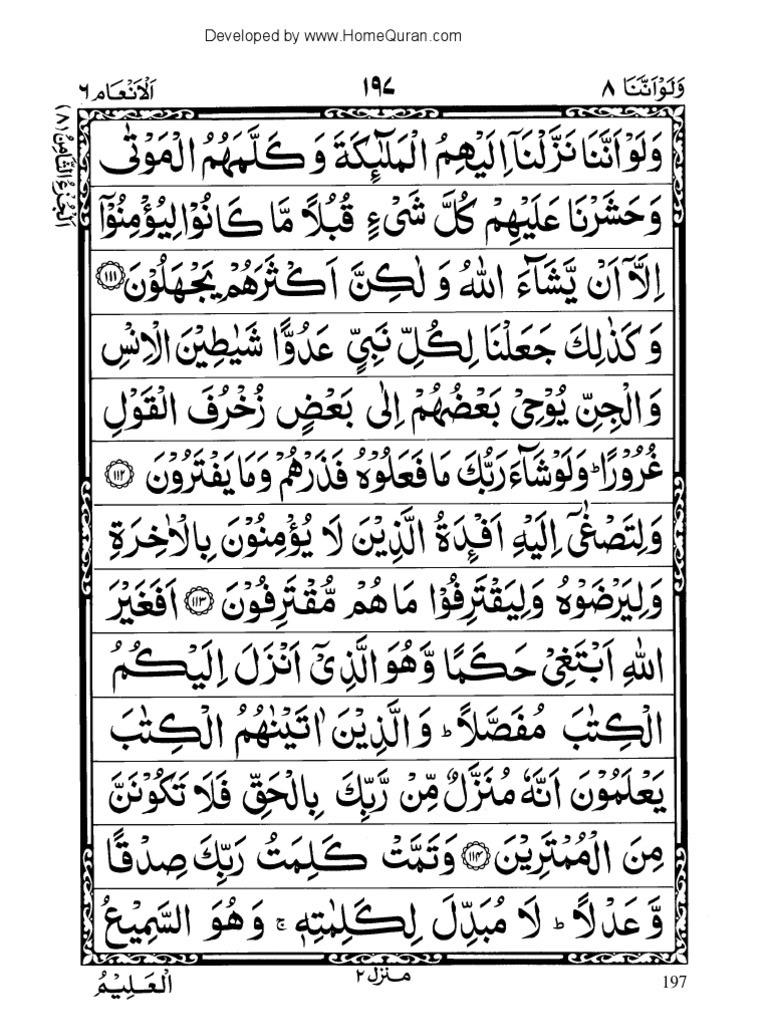 Developed by www.HomeQuran.com
وَلَوْاَنَّنَا ٨
١٩٧
اَلْاَنْعَام ٦
اَلْجُزْءُ الثَّامِنُ (٨)
وَلَوْ اَنَّنَا نَزَّلْنَاۤ اِلَيْهِمُ الْمَلٰٓئِكَةَ وَ كَلَّمَهُمُ الْمَوْتٰى
وَ حَشَرْنَا عَلَيْهِمْ كُلَّ شَیْءٍ قُبُلًا مَّا كَانُوْا لِيُؤْمِنُوْۤا
اِلَّاۤ اَنْ يَّشَآءَ اللّٰهُ وَ لٰكِنَّ اَكْثَرَهُمْ يَجْهَلُوْنَ ١١١
وَ كَذٰلِكَ جَعَلْنَا لِكُلِّ نَبِیٍّ عَدُوًّا شَيٰطِيْنَ الْاِنْسِ
وَ الْجِنِّ يُوْحِیْ بَعْضُهُمْ اِلٰى بَعْضٍ زُخْرُفَ الْقَوْلِ
غُرُوْرًا ؕ وَلَوْ شَآءَ رَبُّكَ مَا فَعَلُوْهُ فَذَرْهُمْ وَمَا يَفْتَرُوْنَ ١١٢
وَلِتَصْغٰۤى اِلَيْهِ اَفْـِٕدَةُ الَّذِيْنَ لَا يُؤْمِنُوْنَ بِالْاٰخِرَةِ
وَلِيَرْضَوْهُ وَلِيَقْتَرِفُوْا مَا هُمْ مُّقْتَرِفُوْنَ ١١٣ اَفَغَيْرَ
اللّٰهِ اَبْتَغِیْ حَكَمًا وَّهُوَ الَّذِیْۤ اَنْزَلَ اِلَيْكُمُ
الْكِتٰبَ مُفَصَّلًا ؕ وَالَّذِيْنَ اٰتَيْنٰهُمُ الْكِتٰبَ
يَعْلَمُوْنَ اَنَّهٗ مُنَزَّلٌ مِّنْ رَّبِّكَ بِالْحَقِّ فَلَا تَكُوْنَنَّ
مِنَ الْمُمْتَرِيْنَ ١١٤ وَتَمَّتْ كَلِمَتُ رَبِّكَ صِدْقًا
وَّ عَدْلًا ؕ لَا مُبَدِّلَ لِكَلِمٰتِهٖ ۚ وَهُوَ السَّمِيْعُ
الْعَلِيْمُ
منزل ٢
197